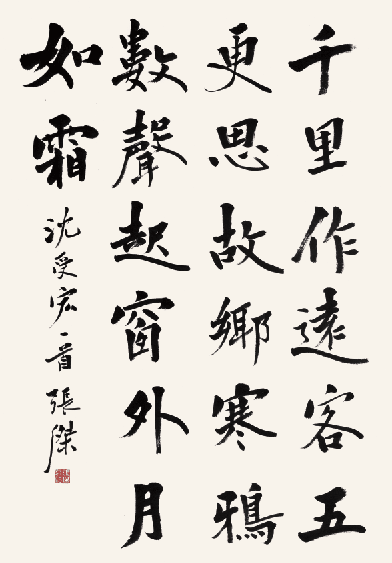 千里作遠客五
更思故鄉寒鴉
數聲起窗外月
如霜
沈受宏一首張傑